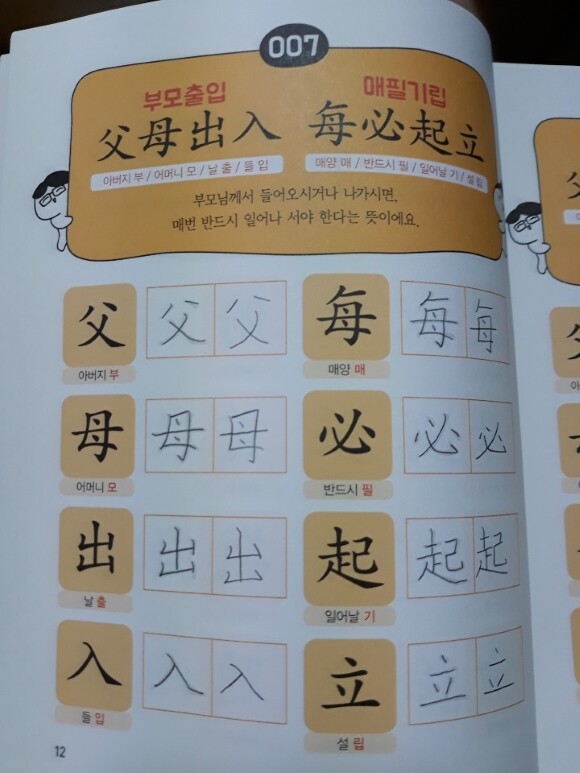 007
부모출입 매필기립
父母出入 每必起立
아버지 부 / 어머니 모 / 날 출 / 들 입 매양 매 / 반드시 필 / 일어날 기 / 설 립
부모님께서 들어오시거나 나가시면,
매번 반드시 일어나 서야 한다는 뜻이에요.
父 父 父 每 每 每
아버지 부 매양 매
母 母 母 必 必 必
어머니 모 반드시 필
出 出 出 起 起 起
날 출 일어날 기
入 入 入 立 立 立
들 입 설 립
12